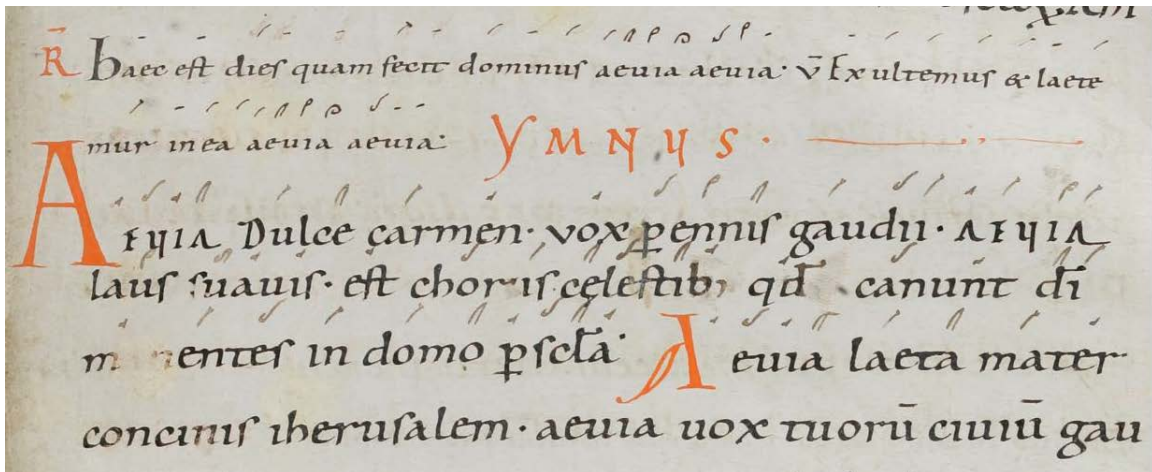 R̄ haec est dies quam fecit dominus aeuia aeuia· v̄ Exultemus & laete
mur in ea aeuia aeuia:
YMNUS ·
AEUIA Dulce carmen· vox ꝑennis gaudii· AEUIA
laus suauis· est choris cęlestib; qđ canunt dī
entes in domo ꝑ sclā·
Aeuia laeta mater
concinis iherusalem· aeuia uox tuorū ciuiū gau